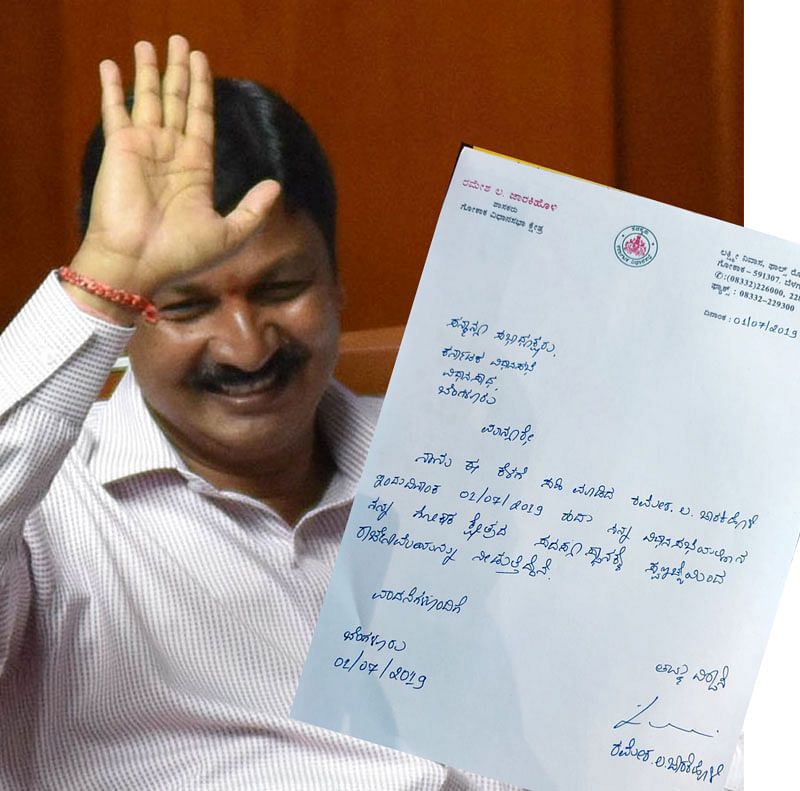 ರಮೇಶ ಲ. ಜಾರಕಿಹೊಳಿ
ಶಾಸಕರು
ಗೋಕಾಕ ವಿಧಾನಸಭಾ ಕ್ಷೇತ್ರ
ಲಕ್ಷ್ಮೀ ನಿವಾಸ, ಫಾಲ್ಸ್
ಗೋಕಾಕ - 591307.
✆:(08332)226000,
ಫ್ಯಾಕ್ಸ್ : 08332-229300
ದಿನಾಂಕ : 01/07/2019
ಸನ್ಮಾನ್ಯ ಸಭಾಧ್ಯಕ್ಷರು,
ಕರ್ನಾಟಕ ವಿಧಾನಸಭೆ
ವಿಧಾನಸೌಧ,
ಬೆಂಗಳೂರು
ಮಾನ್ಯರೇ,
ನಾನು ಈ ಕೆಳಗೆ ಸಹಿ ಮಾಡಿದ ರಮೇಶ. ಲ. ಜಾರಕಿಹೊಳಿ
ಇಂದು ದಿನಾಂಕ 01/07/2019 ರಂದು ನನ್ನ
ನನ್ನ ಗೋಕಾಕ ಕ್ಷೇತ್ರದ ಸದಸ್ಯ ಸ್ಥಾನಕ್ಕೆ ಸ್ವಇಚ್ಛೆಯಿಂದ
ರಾಜೀನಾಮೆಯನ್ನು ನೀಡುತ್ತಿದ್ದೇನೆ.
ವಂದನೆಗಳೊಂದಿಗೆ
ಬೆಂಗಳೂರು
01/07/2019
ತಮ್ಮ ವಿಶ್ವಾಸಿ
ರಮೇಶ. ಲ. ಜಾರಕಿಹೊಳಿ